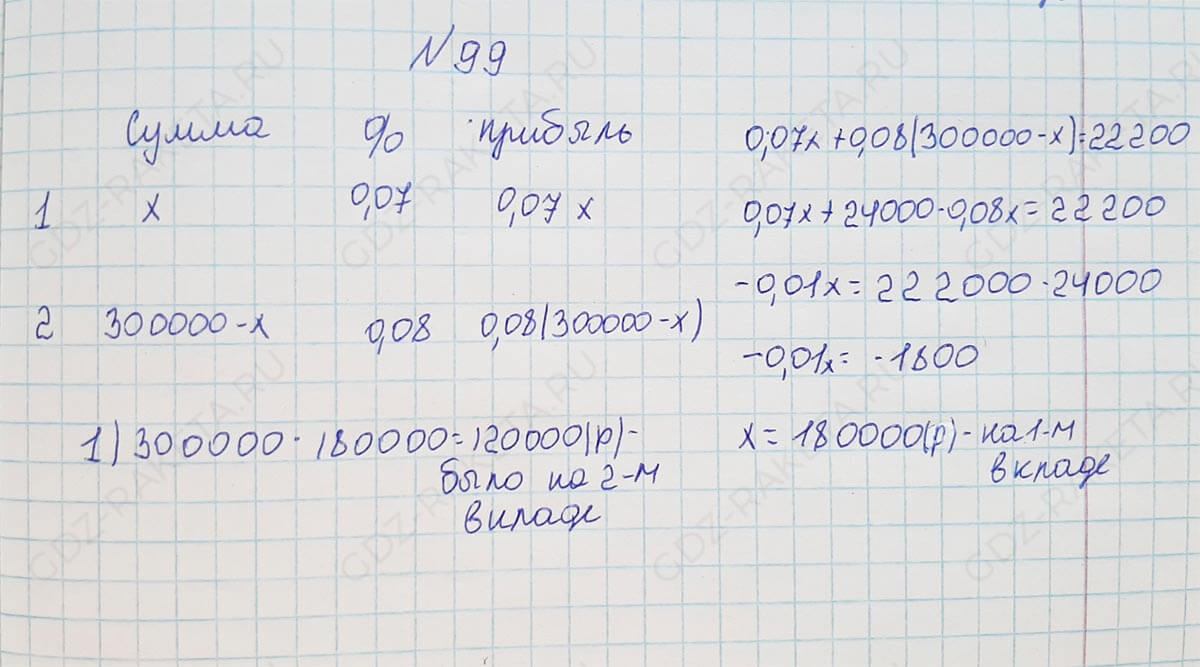 N 99
Сумма % прибыль
1 x 0,07 0,07 x
2 300000-x 0,08 0,08(300000-x)
0,07x+0,08(300000-x)=22200
0,07x+24000-0,08x=22200
-0,01x=222000-24000
-0,01x=-1800
x=180000(р)-на 1-м
вкладе
1) 300000-180000=120000(р)-
было на 2-м
вкладе
GDZ-RAKETA.RU